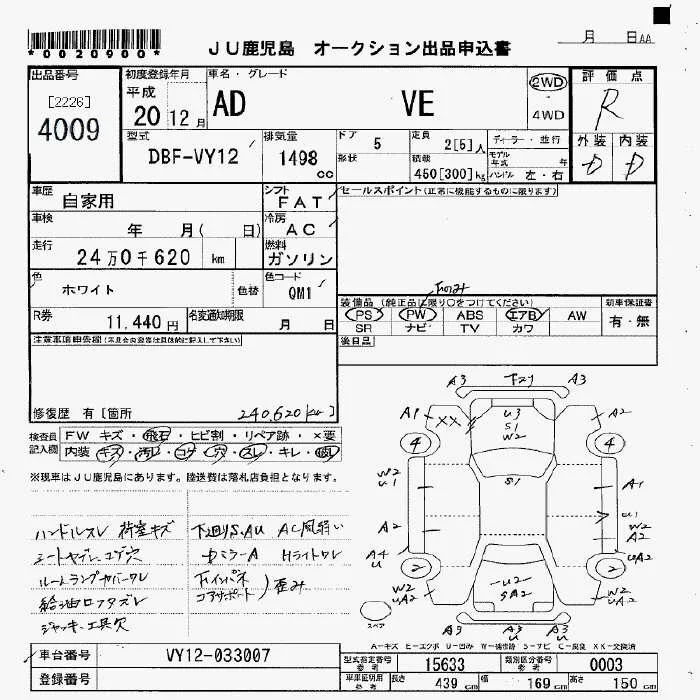 *0020900*
JU鹿児島 オークション出品申込書
月 日AA
出品番号
[2226]
4009
初度登録年月
平成
20 12月
車名・グレード
AD VE
2WD
4WD
評価点
R
外装 内装
D D
型式
DBF-VY12
排気量
1498 cc
ドア 5
形状
定員 2[5]人
積載 450[300]kg
ディーラー・並行
モデル年式 年
ハンドル 左・右
車歴
自家用
シフト
FAT
セールスポイント(正常に機能するものに限ります)
車検
年 月( 日)
冷房
AC
走行
24万0千620 km
燃料
ガソリン
色
ホワイト
色替
色コード
QM1
装備品(純正品に限り○をつけてください)
新車保証書
PS PW ABS エアB AW
SR ナビ TV カワ
有・無
R券
11,440円
名変通知期限
月 日
後日品
注意事項申告欄(不具合内容等は具体的に記入して下さい)
修復歴 有[箇所
240,620km]
検査員記入欄
FW キズ・飛石・ヒビ割・リペア跡・×要
内装・キズ・汚れ・コゲ・穴・スレ・キレ・
※現車はJU鹿児島にあります。陸送費は落札店負担となります。
ハンドルスレ 荷室キズ
下廻りS、AU AC風弱い
シートヤブレ、コゲ穴
ルームランプカバーワレ
ジャッキ、工具欠
コアサポート
歪み
A3 A3
A1 XX
U3
S1
W2
A2
4 4
W2
U1
S1
A1
A2
U1
W2
A2
A4
U
UA2
2 2
W2
UA2
U2
SA2
W2
UA2
A3 A3
U
A3
スペア
A=キズ E=エクボ U=凹み W=補修跡 S=サビ C=腐食 XX=交換済
車台番号
VY12-033007
登録番号
型式指定番号 参考
15633
類別区分番号 参考
0003
車庫証明用 参考
長さ 439 cm 幅 169 cm 高さ 150 cm